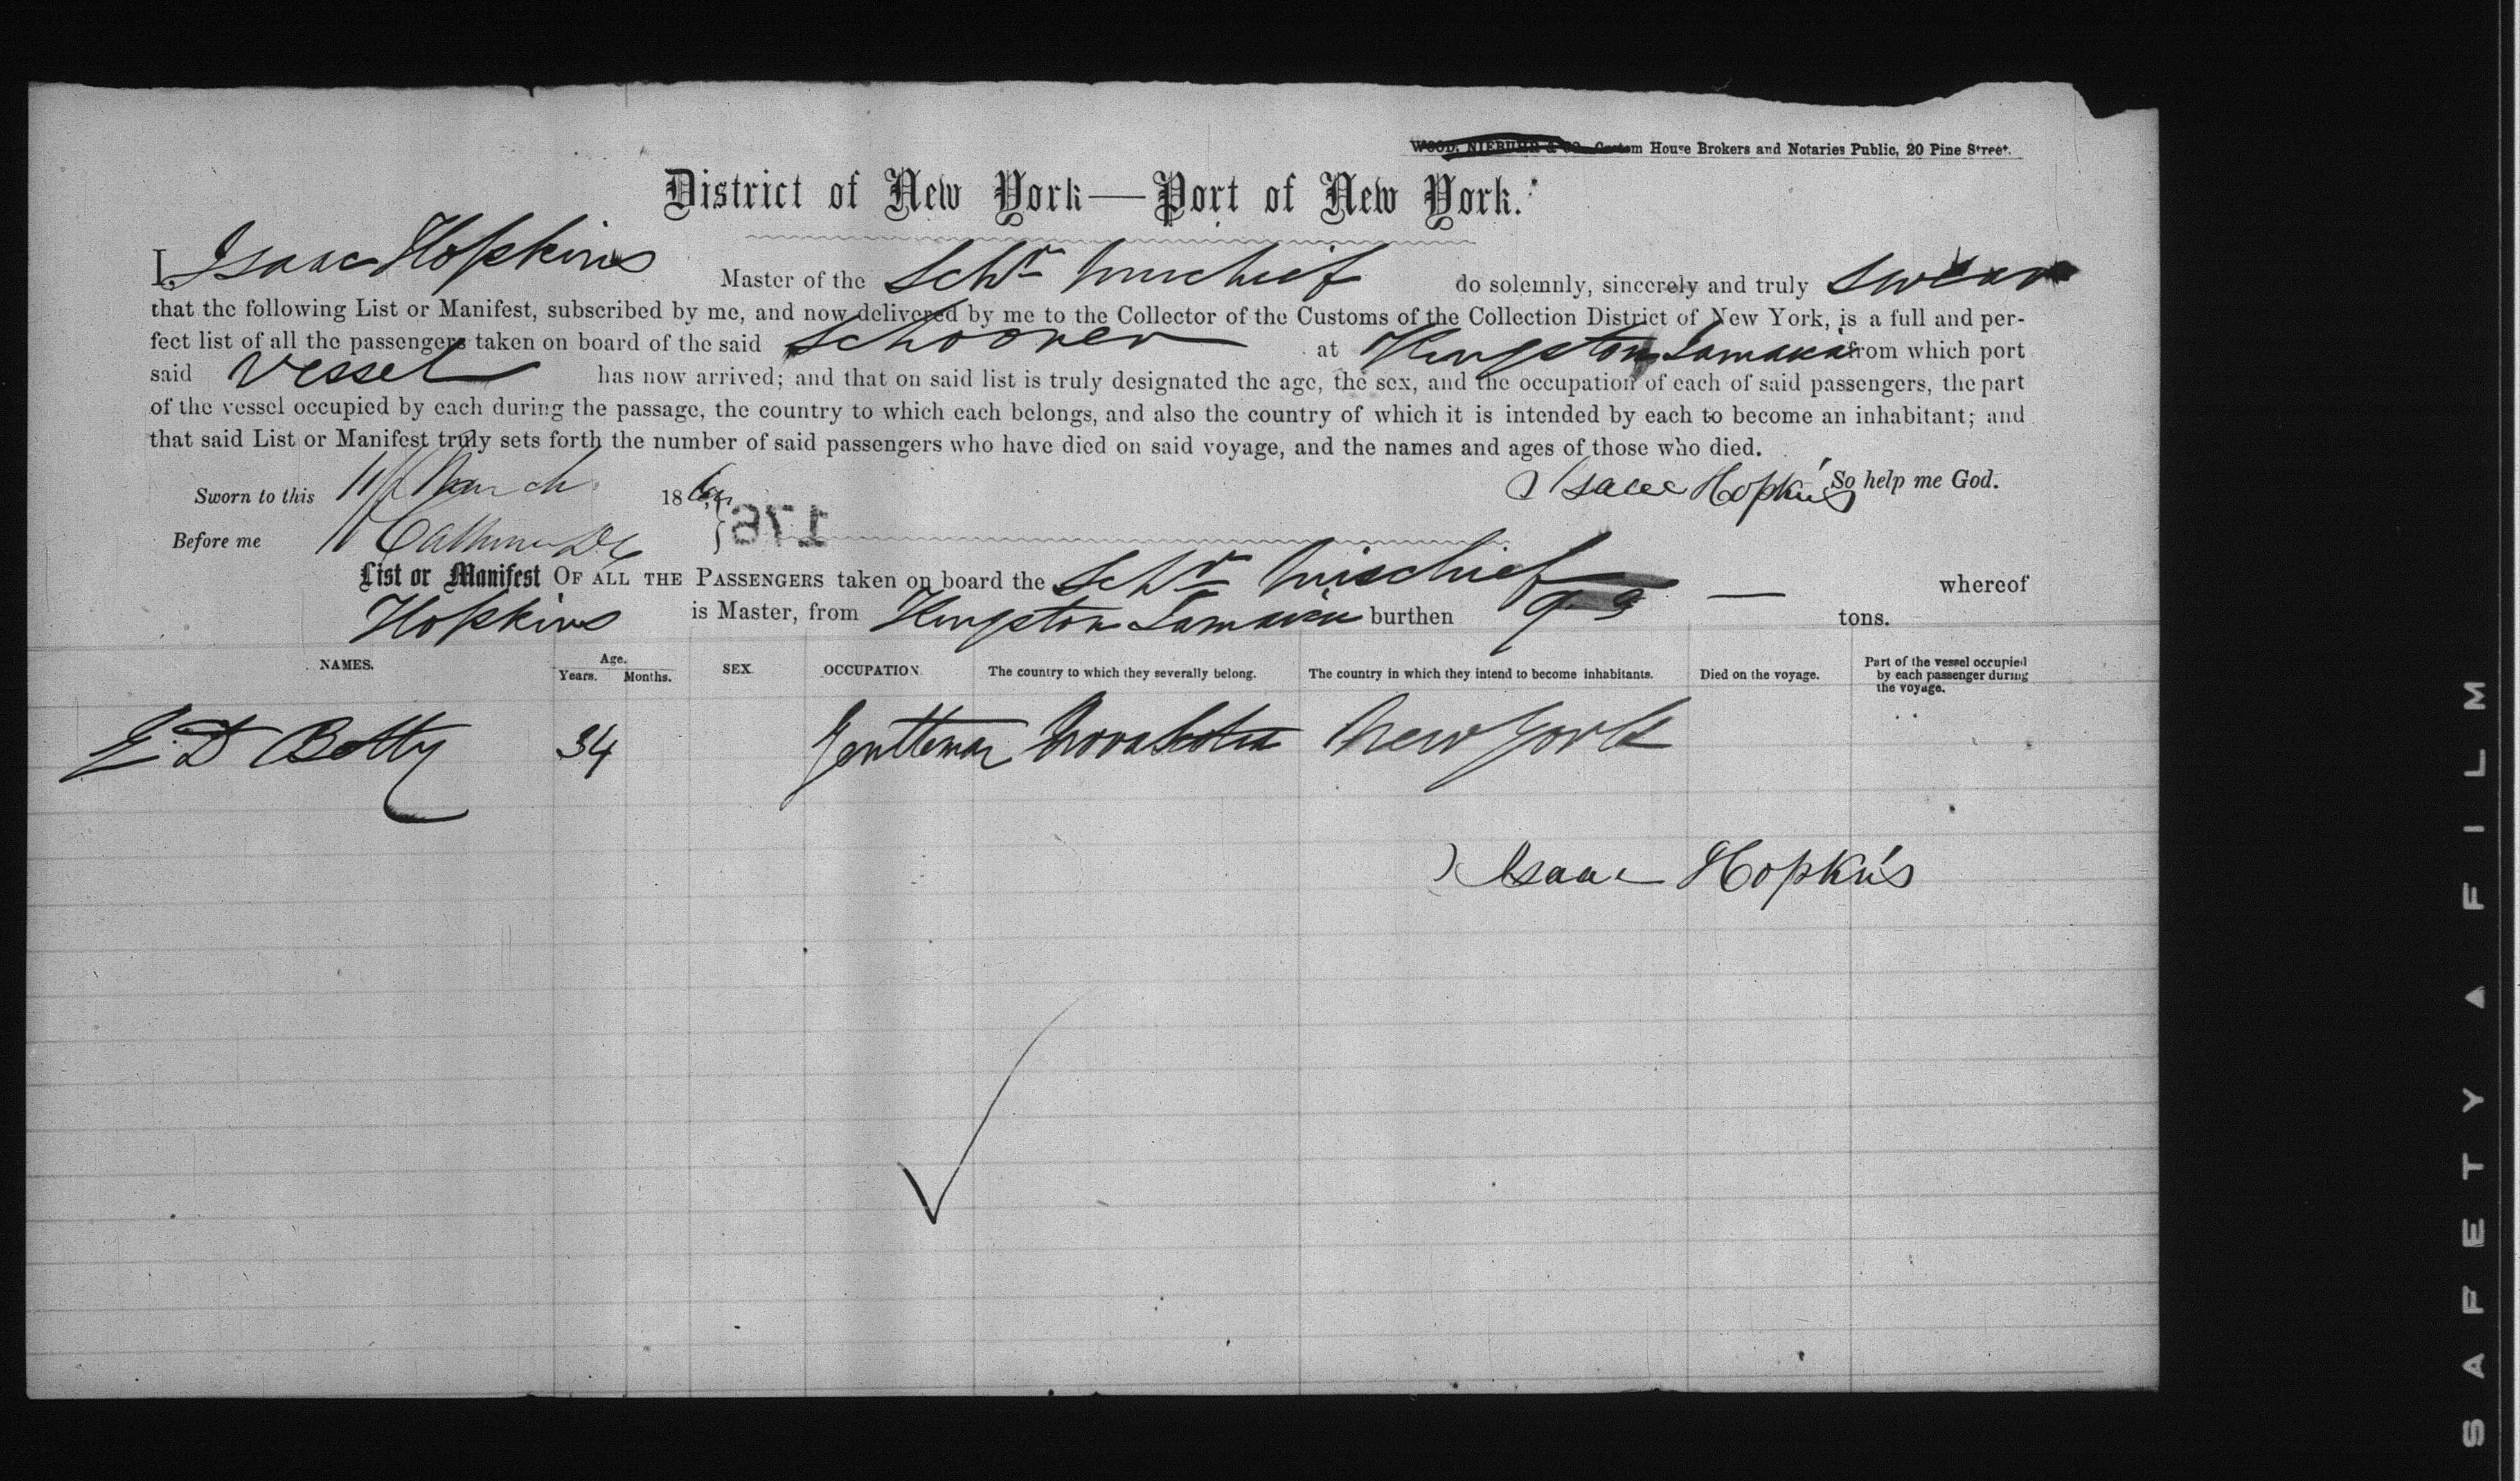 WOOD, NIEBUHR & CO. Custom House Brokers and Notaries Public, 20 Pine Street.
District of New York—Port of New York.
I, Isaac Hopkins Master of the Schr Mischief do solemnly, sincerely and truly swear
that the following List or Manifest, subscribed by me, and now delivered by me to the Collector of the Customs of the Collection District of New York, is a full and per-
fect list of all the passengers taken on board of the said Schooner at Kingston Jamaica from which port
said Vessel has now arrived; and that on said list is truly designated the age, the sex, and the occupation of each of said passengers, the part
of the vessel occupied by each during the passage, the country to which each belongs, and also the country of which it is intended by each to become an inhabitant; and
that said List or Manifest truly sets forth the number of said passengers who have died on said voyage, and the names and ages of those who died.
Sworn to this 11 March 186 Isaac Hopkins So help me God.
Before me 176
List or Manifest OF ALL THE PASSENGERS taken on board the Schr Mischief — whereof
Hopkins is Master, from Kingston Jamaica burthen 93 tons.
NAMES. Age. Years. Months. SEX. OCCUPATION. The country to which they severally belong. The country in which they intend to become inhabitants. Died on the voyage. Part of the vessel occupied by each passenger during the voyage.
E D Betty 34 Gentleman Nova Scotia New York
Isaac Hopkins
SAFETY ▲ FILM